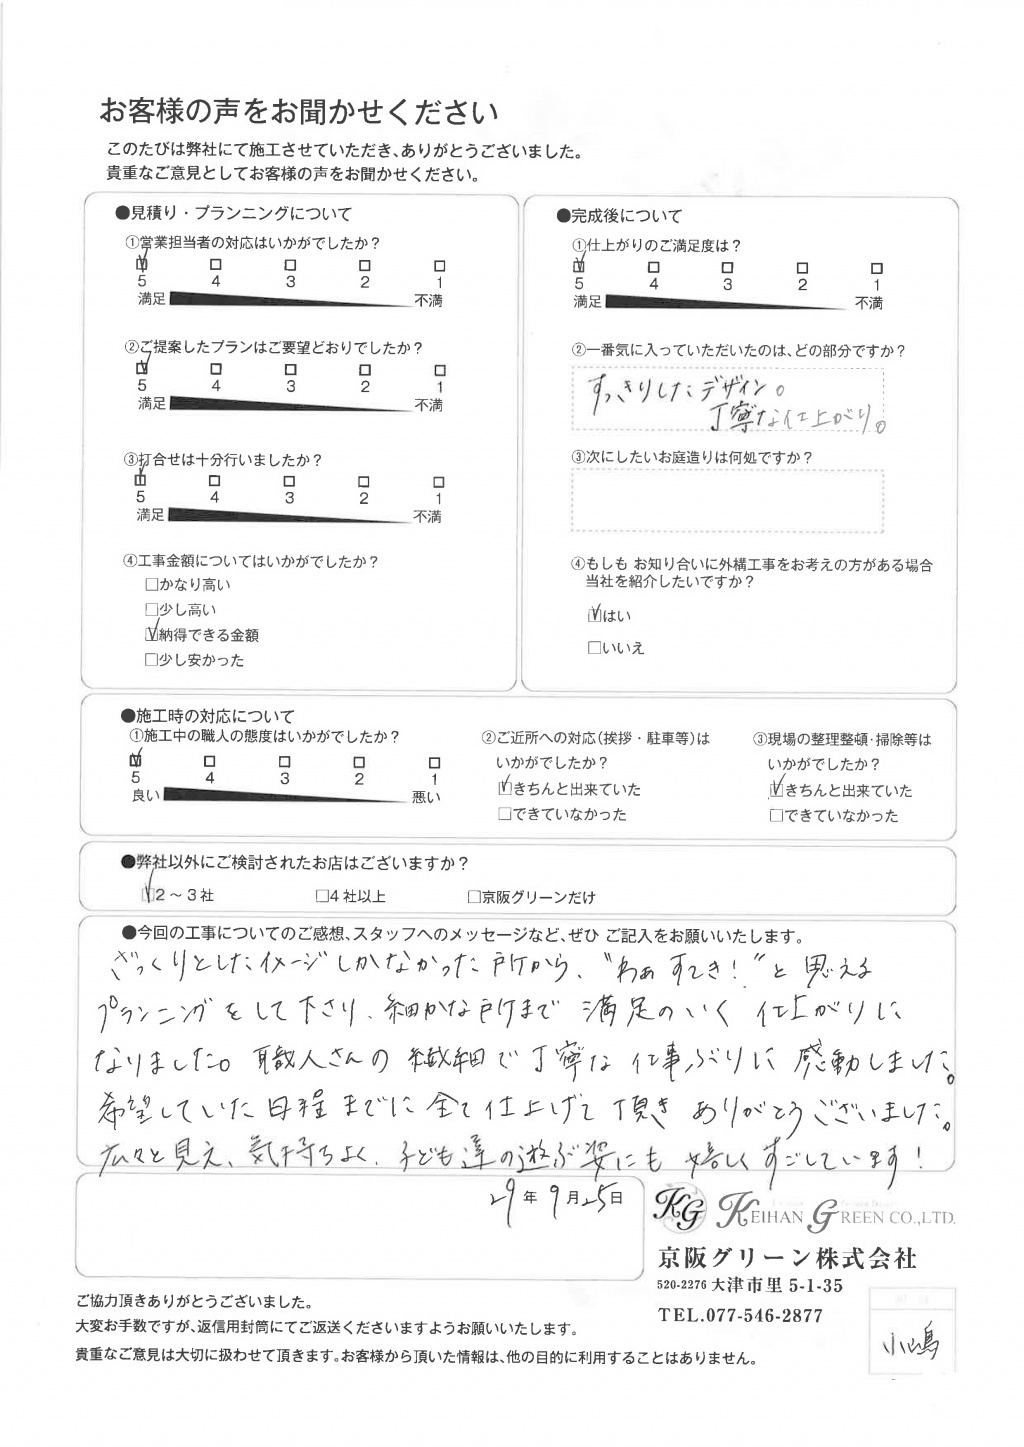 お客様の声をお聞かせください
このたびは弊社にて施工させていただき、ありがとうございました。
貴重なご意見としてお客様の声をお聞かせください。
●見積り・プランニングについて
①営業担当者の対応はいかがでしたか?
☑ □ □ □ □
5 4 3 2 1
満足 不満
②ご提案したプランはご要望どおりでしたか?
☑ □ □ □ □
5 4 3 2 1
満足 不満
③打合せは十分行いましたか?
☑ □ □ □ □
5 4 3 2 1
満足 不満
④工事金額についてはいかがでしたか?
□かなり高い
□少し高い
☑納得できる金額
□少し安かった
●完成後について
①仕上がりのご満足度は?
☑ □ □ □ □
5 4 3 2 1
満足 不満
②一番気に入っていただいたのは、どの部分ですか?
すっきりしたデザイン。
丁寧な仕上がり。
③次にしたいお庭造りは何処ですか?
④もしも お知り合いに外構工事をお考えの方がある場合
当社を紹介したいですか?
☑はい
□いいえ
●施工時の対応について
①施工中の職人の態度はいかがでしたか?
☑ □ □ □ □
5 4 3 2 1
良い 悪い
②ご近所への対応(挨拶・駐車等)は
いかがでしたか?
☑きちんと出来ていた
□できていなかった
③現場の整理整頓・掃除等は
いかがでしたか?
☑きちんと出来ていた
□できていなかった
●弊社以外にご検討されたお店はございますか?
☑2～3社 □4社以上 □京阪グリーンだけ
●今回の工事についてのご感想、スタッフへのメッセージなど、ぜひ ご記入をお願いいたします。
ざっくりとしたイメージしかなかった所から、"わぁ すてき!"と思える
プランニングをして下さり、細かな所まで 満足のいく 仕上がりに
なりました。職人さんの 繊細で丁寧な 仕事ぶりに 感動しました。
希望していた日程までに全て仕上げて頂き ありがとうございました。
広々と見え、気持ちよく、子ども達の遊ぶ姿にも 嬉しく すごしています!
29年9月25日
KG KEIHAN GREEN CO.,LTD.
京阪グリーン株式会社
520-2276 大津市里 5-1-35
TEL.077-546-2877
ご協力頂きありがとうございました。
大変お手数ですが、返信用封筒にてご返送くださいますようお願いいたします。
貴重なご意見は大切に扱わせて頂きます。お客様から頂いた情報は、他の目的に利用することはありません。
小嶋